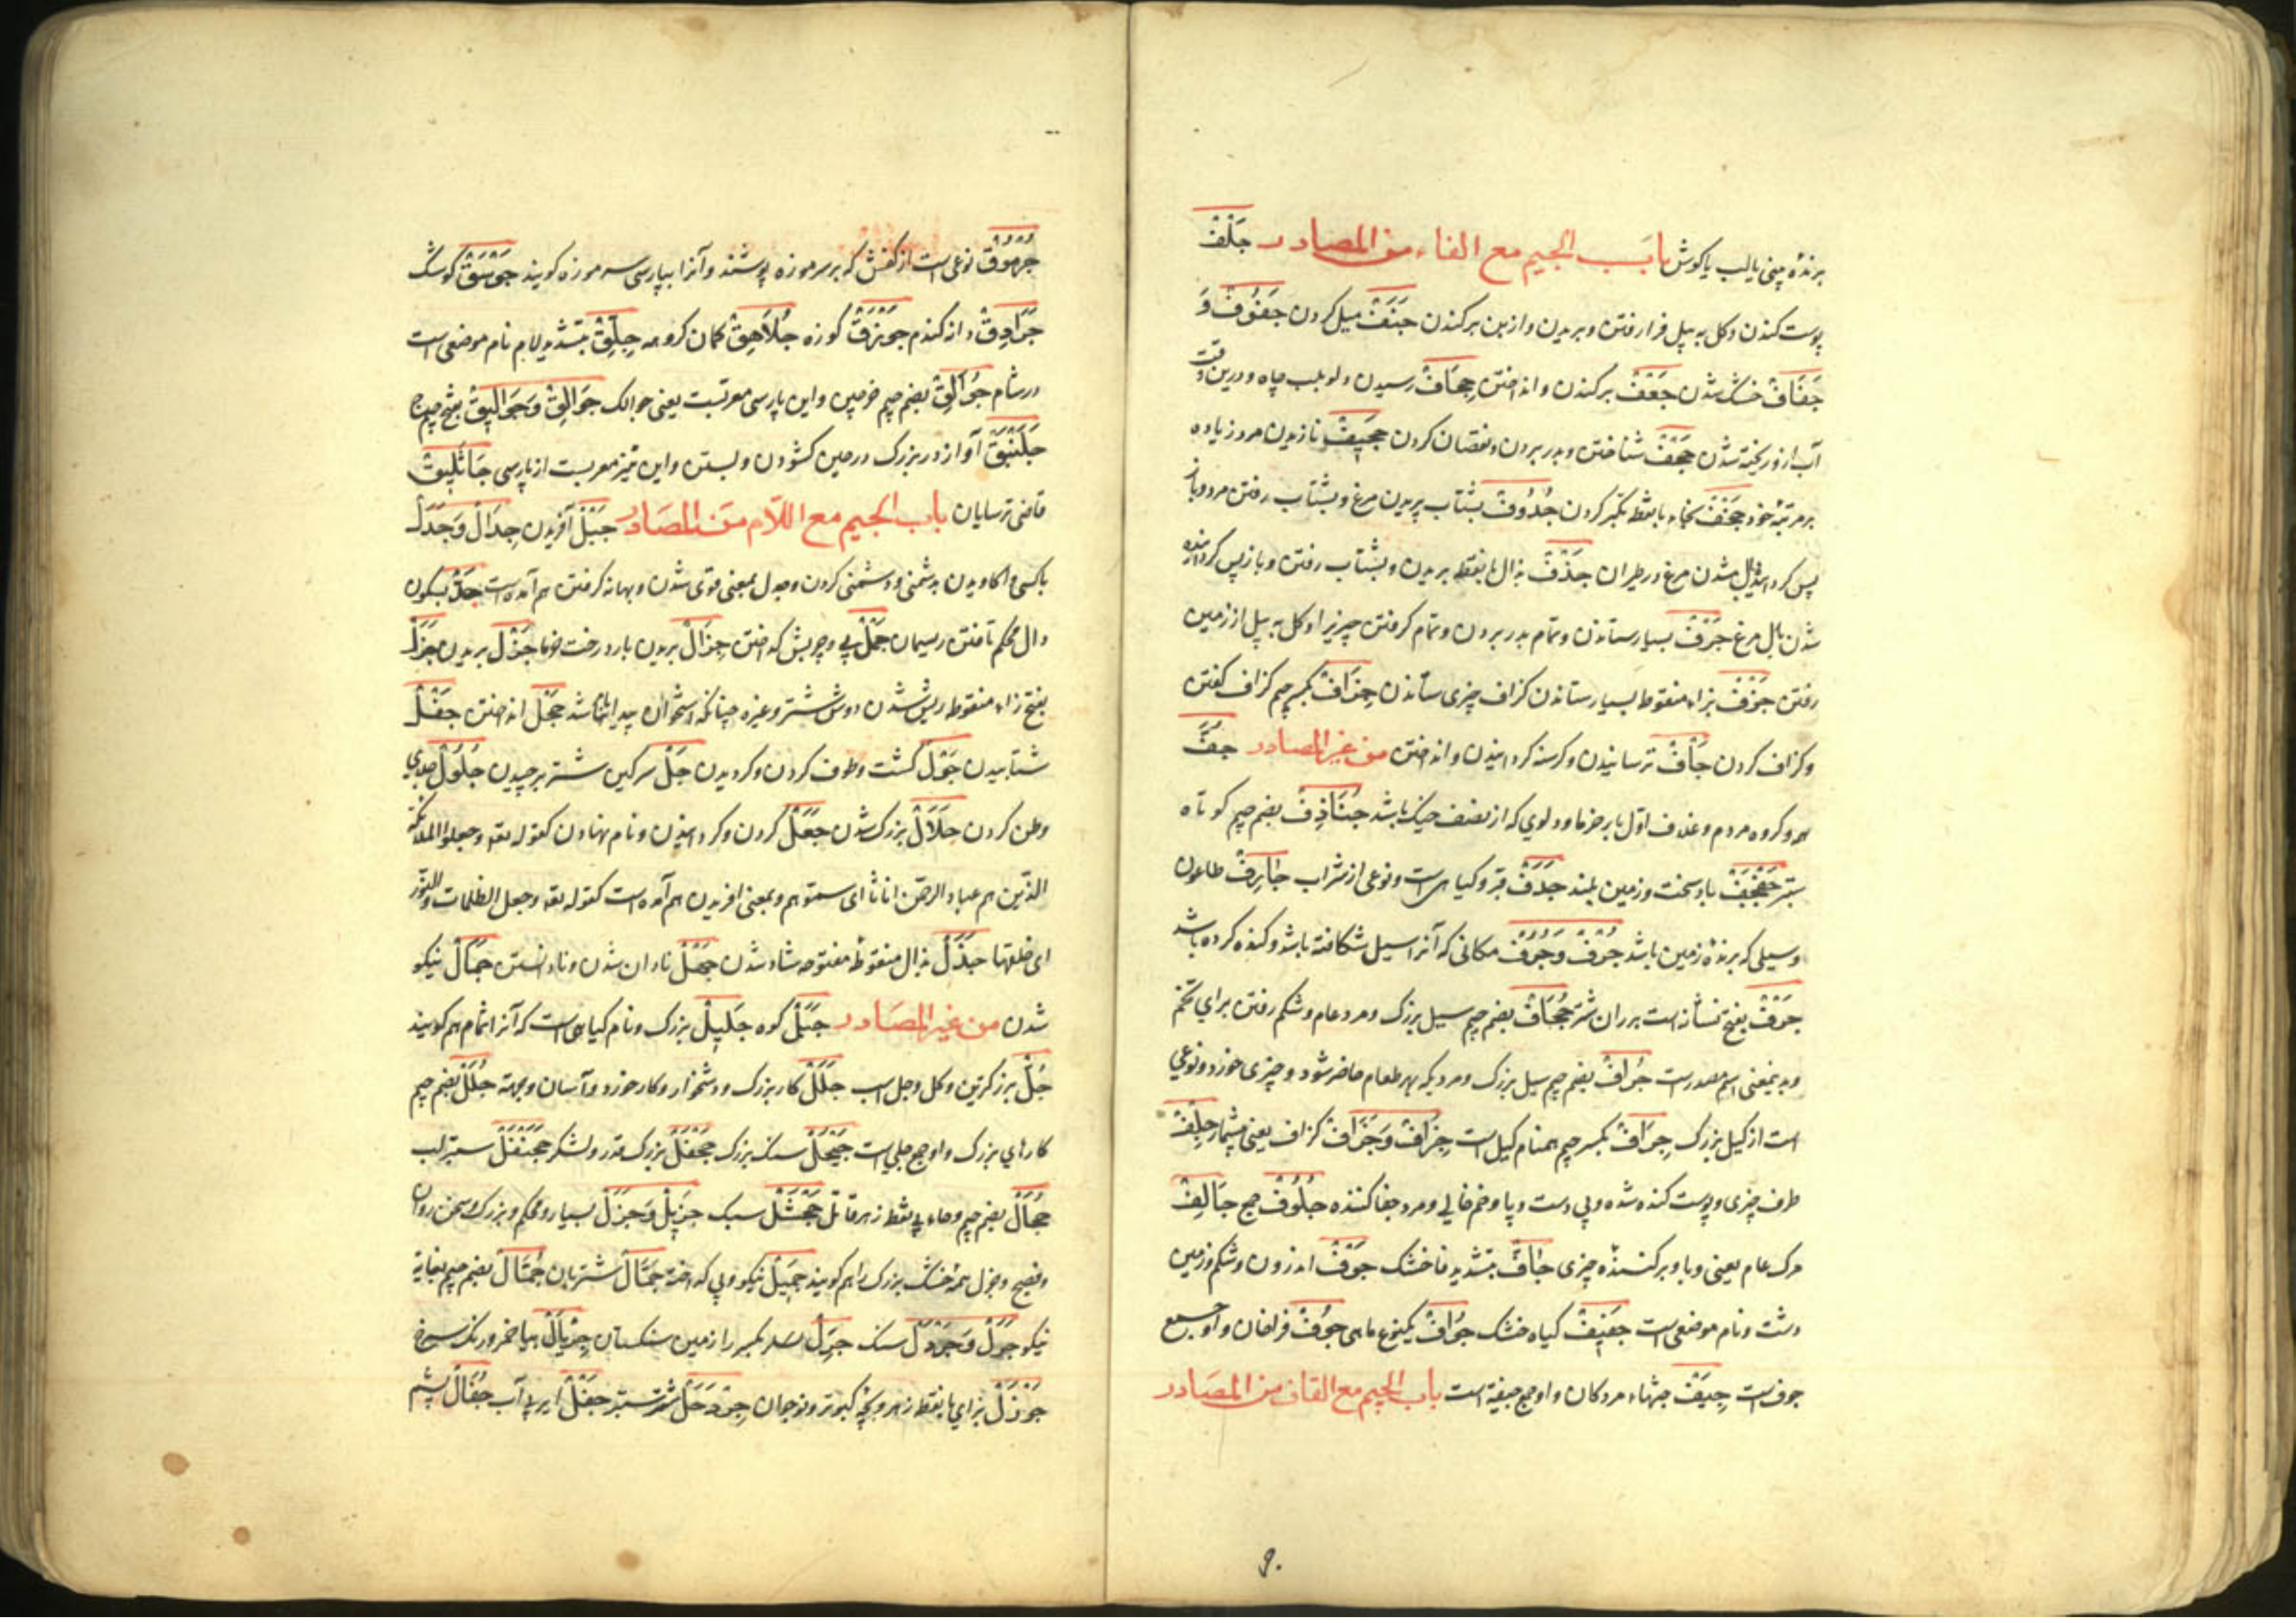 برنده بینی یا لب یا کوش باب الجیم مع الفاء من المصادر جَلْف
پوست کندن و کل به بیل فرا رفتن و بریدن و از بن برکندن جَنَف میل کردن جفوف و
جَفاف خشک شدن جَعْف برکندن و انداختن جِحاف رسیدن دلو بلب چاه و درین وقت
آب ازو ریخته شدن جَحْف شناختن و بدر بردن و نقصان کردن جخیف نازیدن مرد زیاده
بر مرتبه خود جَخْف بخاء با نقطه تکبر کردن جُدُوف بشتاب پریدن مرغ و بشتاب رفتن مرد و باز
پس شدن مرغ در طیران جَذْف بذال با نقطه بریدن و بشتاب رفتن و باز پس کردانیده
شدن بال مرغ جَرْف بسیار ستاندن و تمام بدر بردن و تمام کرفتن چیزیرا و کل به بیل از زمین
رفتن جَزْف بزاء منقوطه بسیار ستاندن کزاف چیزی ستاندن جِزاف بکسر جیم کزاف کفتن
و کزاف کردن جَأْف ترسانیدن و کرسنه کردانیدن و انداختن من غیر المصادر جُفّ
هر دو کروه مردم و غلاف اول بار خرما و دلوی که از نصف خیک باشد جُنادِف بضم جیم کوتاه
ستبر جَفْجَف باد سخت و زمین بلند جَدَف قبر و کیاهی است و نوعی از شراب جارِف طاعون
و سیلی که برنده زمین باشد جُرْف وَجُرُف مکانی که آنرا سیل شکافته باشد و کنده کرده باشد
جَرْف بفتح نشانه است بر ران شتر جُحاف بضم جیم سیل بزرک و مرد عام و شکم رفتن برای تخم
و بدینمعنی اسم مصدرست جُراف بضم جیم سیل بزرک و مردیکه بهر طعام حاضر شود و چیزی خورد و نوعی
است از کیل بزرک جِراف بکسر جیم همنام کیل است جِزاف وَجُزاف کزاف یعنی بیشمار جِلْف
ظرف چیزی و پوست کنده شده و بی دست و پا و خم خالی و مرد جفا کننده جُلُوف جمع جالِف
مرک عام یعنی وبا و برکننده چیزی جافّ بتشدید فا خشک جَوْف اندرون و شکم و زمین
دشت و نام موضعی است جَفیف کیاه خشک جُواف یکنوع ماهی جُوف فراخان و او جمع
جوف است جِیَف جثهاء مردکان و او جمع جیفه است باب الجیم مع القاف من المصادر
جُرْموق نوعی است از کفش که بر سر موزه پوشند و آنرا بپارسی سر موزه کویند جَوْسَق کوشک
جَرادِق دانه کندم جَوْزَق کوزه جُلاهِق کمان کروهه جِلِّق بتشدید لام نام موضعی است
در شام جُوالِق بضم جیم خرجین و این پارسی معربست یعنی جوالک جَوالِق وَجَوالیق بفتح جیم جمع
جَلَنْبَق آواز در بزرک در حین کشودن و بستن و این نیز معربست از پارسی جاثَلیق
قاضی ترسایان باب الجیم مع اللام من المصادر جَبْل آفریدن جِدال وَجَدَل
با کسی واکاویدن بدشمنی و دشمنی کردن و جدل بمعنی قوی شدن و بهانه کرفتن هم آمده است جَدْل بسکون
دال محکم تافتن ریسمان جَمْل پی و چربش کداختن جِزال بریدن بار درخت خرما جَزْل بریدن جَزَل
بفتح زاء منقوطه ریش شدن دوش شتر و غیره چنانکه استخوان پیدا باشد جَحْل انداختن جَفْل
شتابیدن جَوْل کشت و طوف کردن و کردیدن جَلّ سرکین شتر برچیدن جُلُول جلای
وطن کردن جَلال بزرک شدن جَعْل کردن و کردانیدن و نام نهادن کقوله تعه وجعلوا الملائکة
الذین هم عباد الرحمن اناثا ای سموهم و بمعنی افریدن هم آمده است کقوله تعه وجعل الظلمات والنور
ای خلقها جَذَل بذال منقوطه مفتوحه شاد شدن جَهْل نادان شدن و نادانستن جَمال نیکو
شدن من غیر المصادر جَبَل کوه جَلیل بزرک و نام کیاهی است که آنرا ثمام هم کویند
جُلّ بزرکترین و کل و جل اسب جَلَل کار بزرک و دشخوار و کار خورد و آسان و جهة جُلَل بضم جیم
کارهای بزرک و او جمع جلی است جَیْحَل سنک بزرک جَحْفَل بزرک قدر و لشکر جَحَنْفَل ستبر لب
جُحال بضم جیم و حاء بی نقطه زهر قاتل جَحْشَل سبک جَزیل وَجَزْل بسیار و محکم و بزرک و سخن روان
و فصیح و جزل همه خشک بزرک را هم کویند جَمیل نیکو و پی کداخته جَمّال شتربان جُمّال بضم جیم بغایة
نیکو جَرْوَل سنک جَرِل بکسر را زمین سنکستان جِرْیال می احمر و رنک سرخ
جَوْزَل بزای با نقطه زهر و بچه کبوتر و نوجوان جِرْدَحْل شتر ستبر جَفْل ابر بی آب جُفال پشم